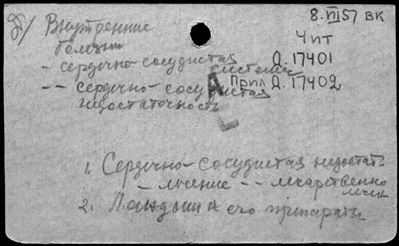 8.VI57 ВК
б/ Внутренние
болезни
Чит
- сердечно-сосудистая
система
Д.17401
-- сердечно-сосудистая
недостаточность
Прил Д.17402
1. Сердечно-сосудистая недостат-
- лечение -- лекарственно
2. Ландыш и его препараты